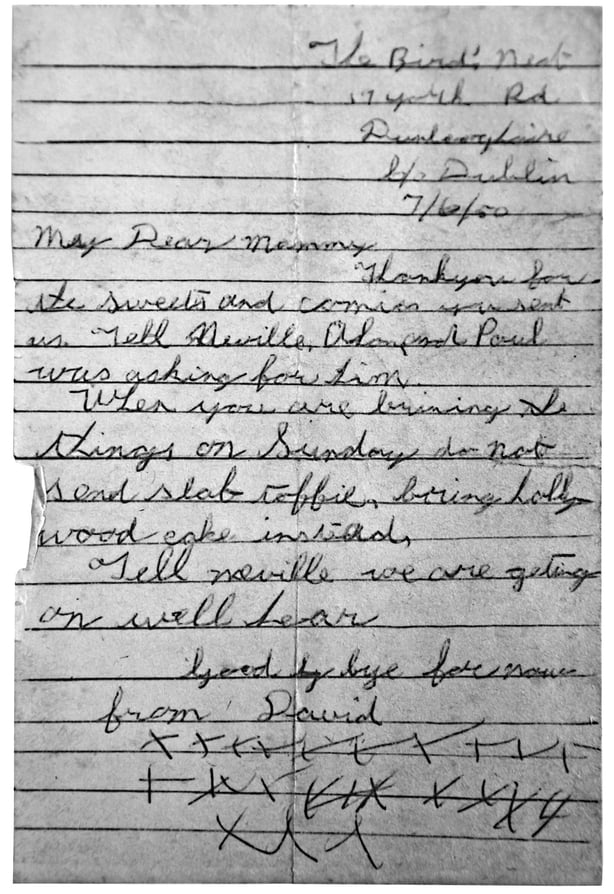 The Bird's Nest
17 York Rd
Dunlaoghaire
Co Dublin
7/6/50
My Dear Mammy
Thankyou for
the sweets and comics you sent
us. Tell Neville, Alan and Paul
was asking for him.
When you are brining the
things on Sunday do not
send slab toffie, bring holly
wood cake instead,
Tell neville we are geting
on well hear
Good by bye for now
from David